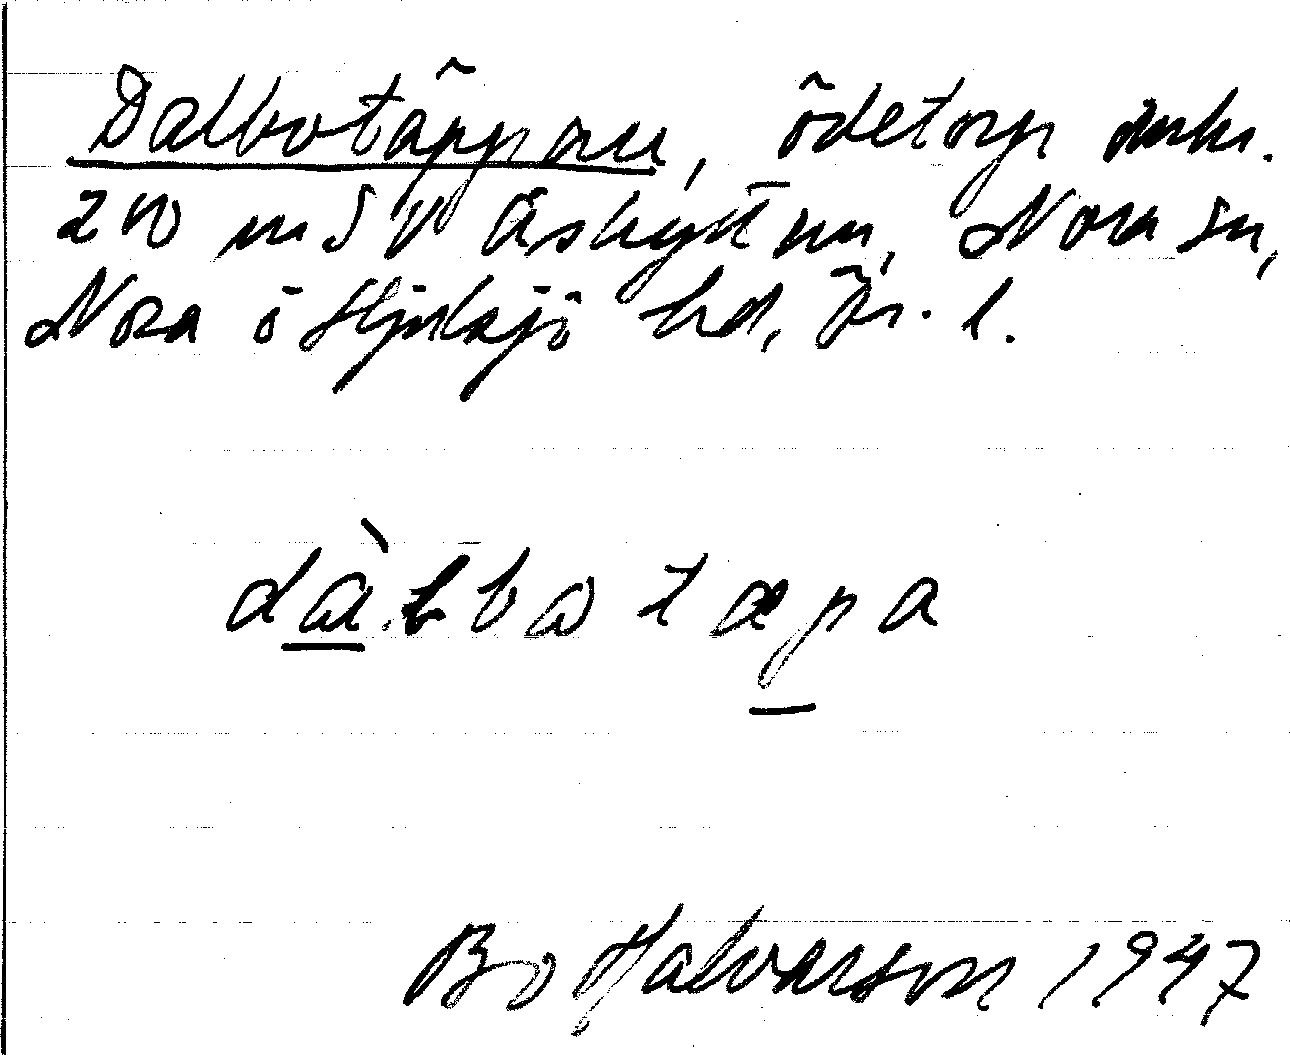 Dalbotäppan, ödetorp
200 m SV Åshyttan, Nora sn,
Nora o Hjulsjö hd, Ör. l.
dàlbotæpa
Bo Halvarson 1947